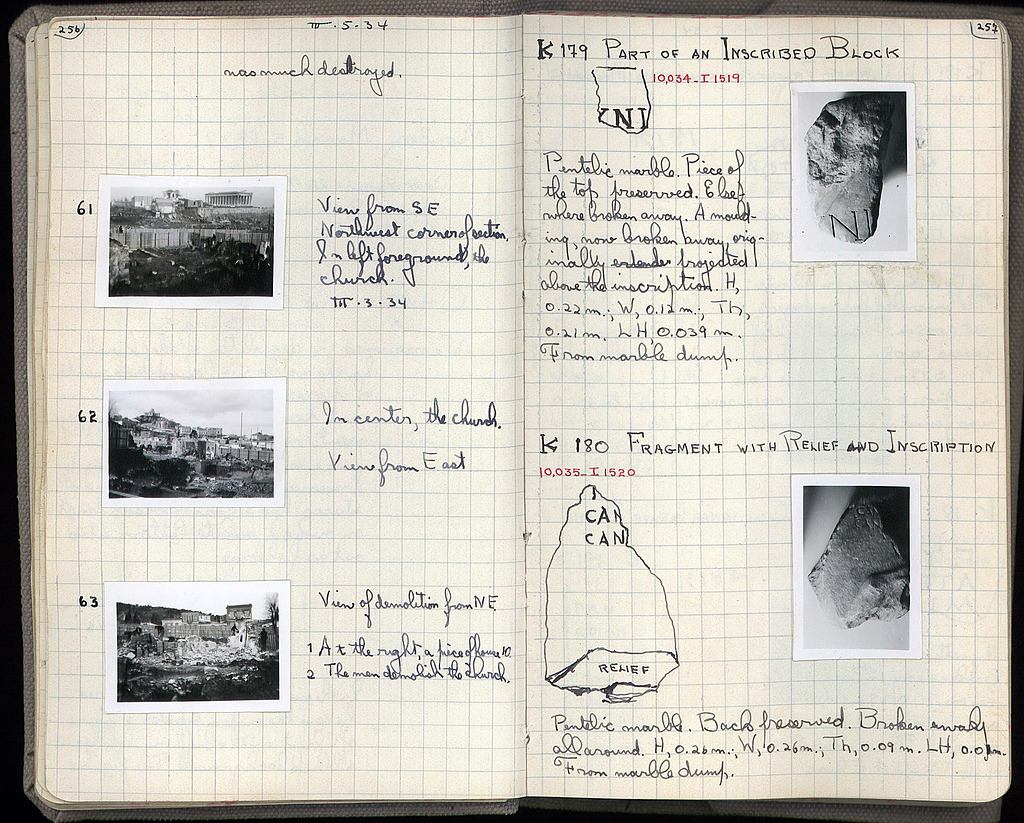 256
III · 5 · 34
was much destroyed.
61
View from SE
Northwest corner of section.
In left foreground, the
church.
III · 3 · 34
62
In center, the church.
View from East
63
View of demolition from NE.
1 At the right, a piece of house 10.
2 The men demolish the church.
257
K 179 PART OF AN INSCRIBED BLOCK
10,034 - I 1519
NI
Pentelic marble. Piece of
the top preserved. Else-
where broken away. A mould-
ing, now broken away, orig-
inally projected
above the inscription. H,
0.22 m.; W, 0.12 m.; Th,
0.21 m. LH, 0.039 m.
From marble dump.
NI
K 180 FRAGMENT WITH RELIEF AND INSCRIPTION
10,035 - I 1520
CAN
CAN
RELIEF
Pentelic marble. Back preserved. Broken away
all around. H, 0.26 m.; W, 0.26 m.; Th, 0.09 m. LH,
From marble dump.